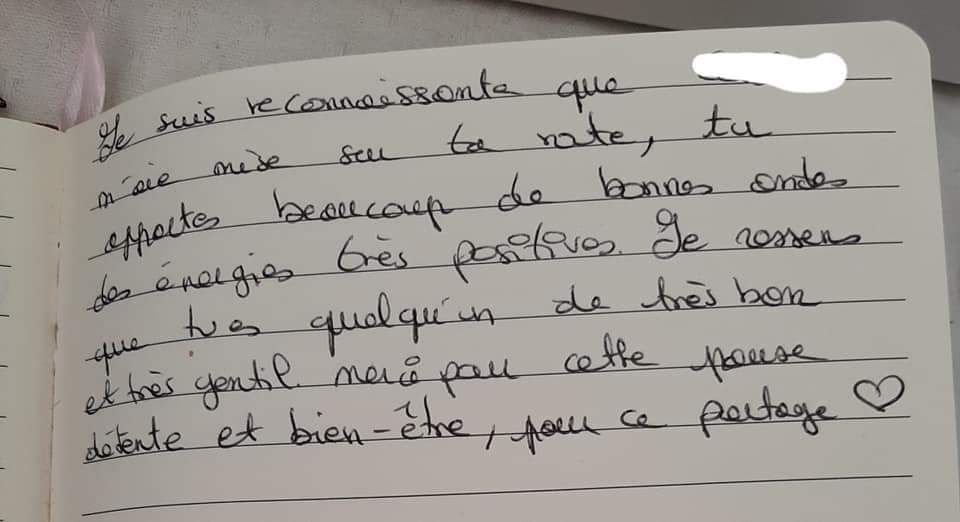 Je suis reconnaissante que
m'aie mise sur ta route, tu
apportes beaucoup de bonnes ondes
des énergies très positives. Je ressens
que tu es quelqu'un de très bon
et très gentil. merci pour cette pause
détente et bien-être, pour ce partage ♡